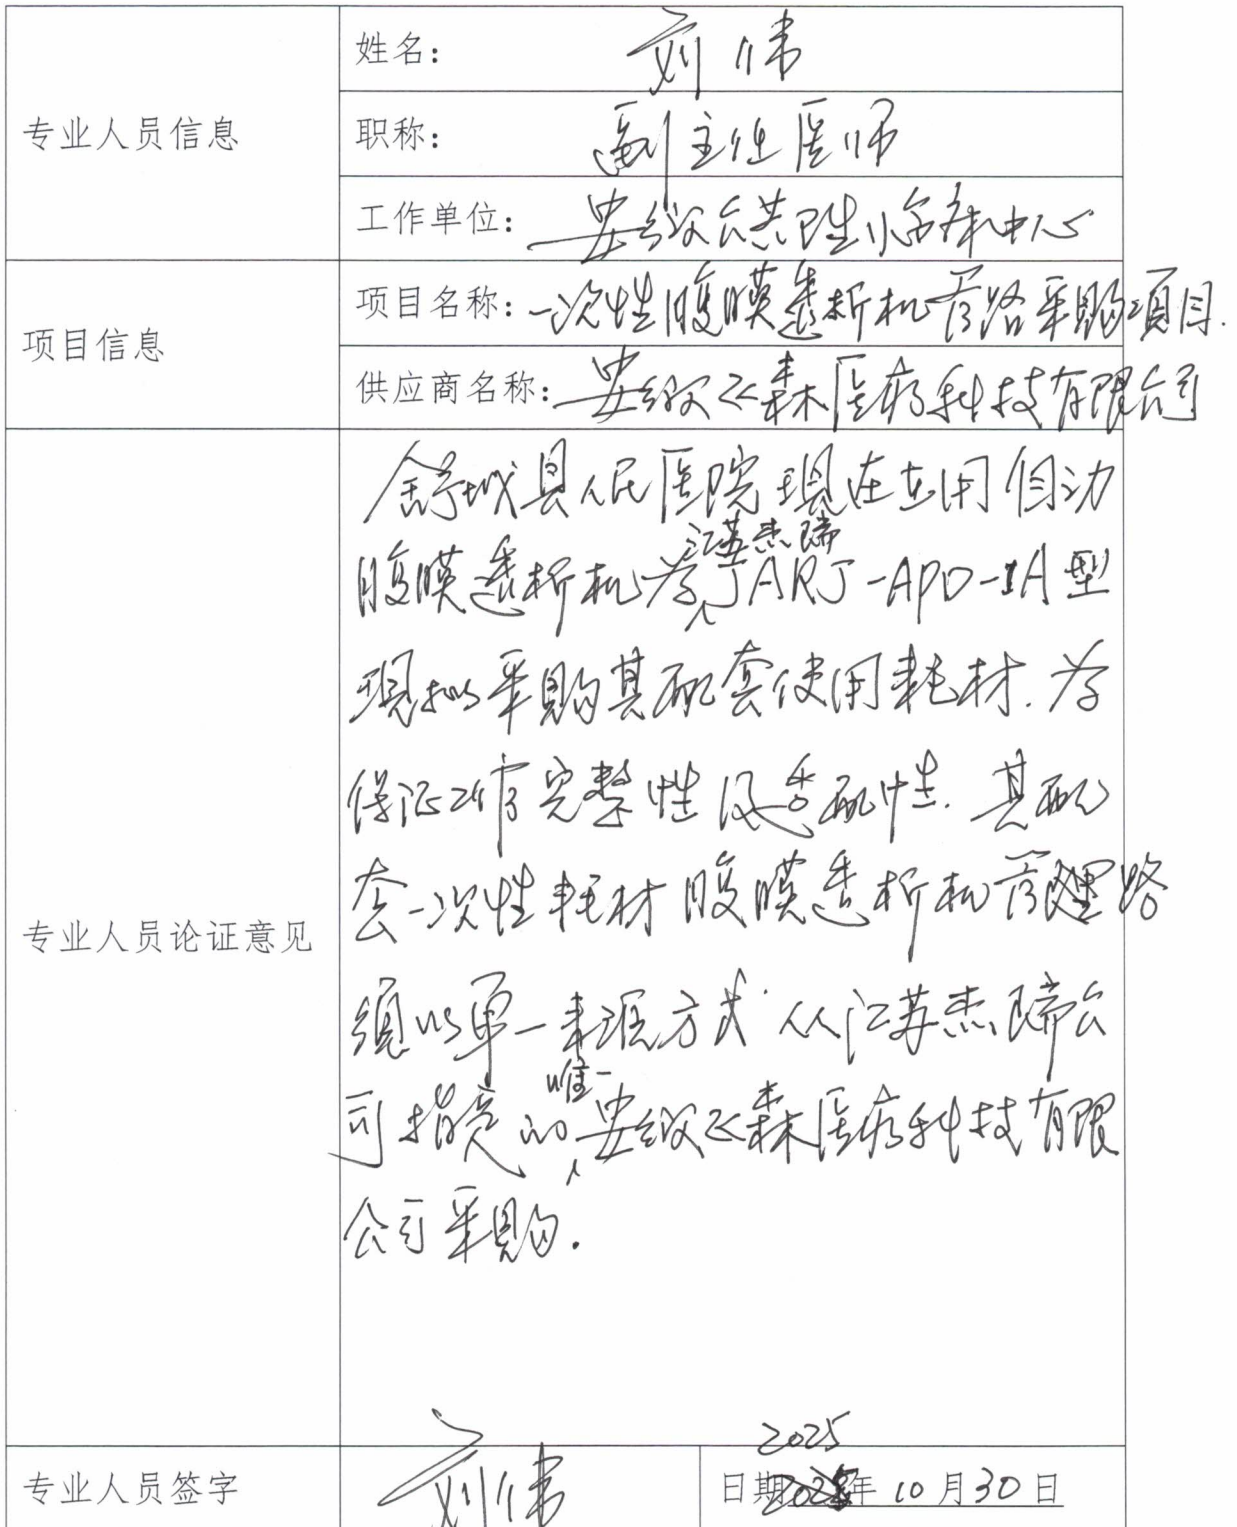 专业人员信息
姓名：刘伟
职称：副主任医师
工作单位：安徽公共卫生临床中心
项目信息
项目名称：一次性腹膜透析机管路采购项目.
供应商名称：安徽飞森医疗科技有限公司
专业人员论证意见
舒城县人民医院现在应用自动
江苏杰瑞
腹膜透析机为JARJ-APD-1A型
现拟采购其配套使用耗材.为
保证工作完整性及适配性.其配
套一次性耗材腹膜透析机管路
须以单一来源方式从江苏杰瑞公
唯一
司指定的安徽飞森医疗科技有限
公司采购.
专业人员签字
刘伟
2025
日期 年 10 月 30 日